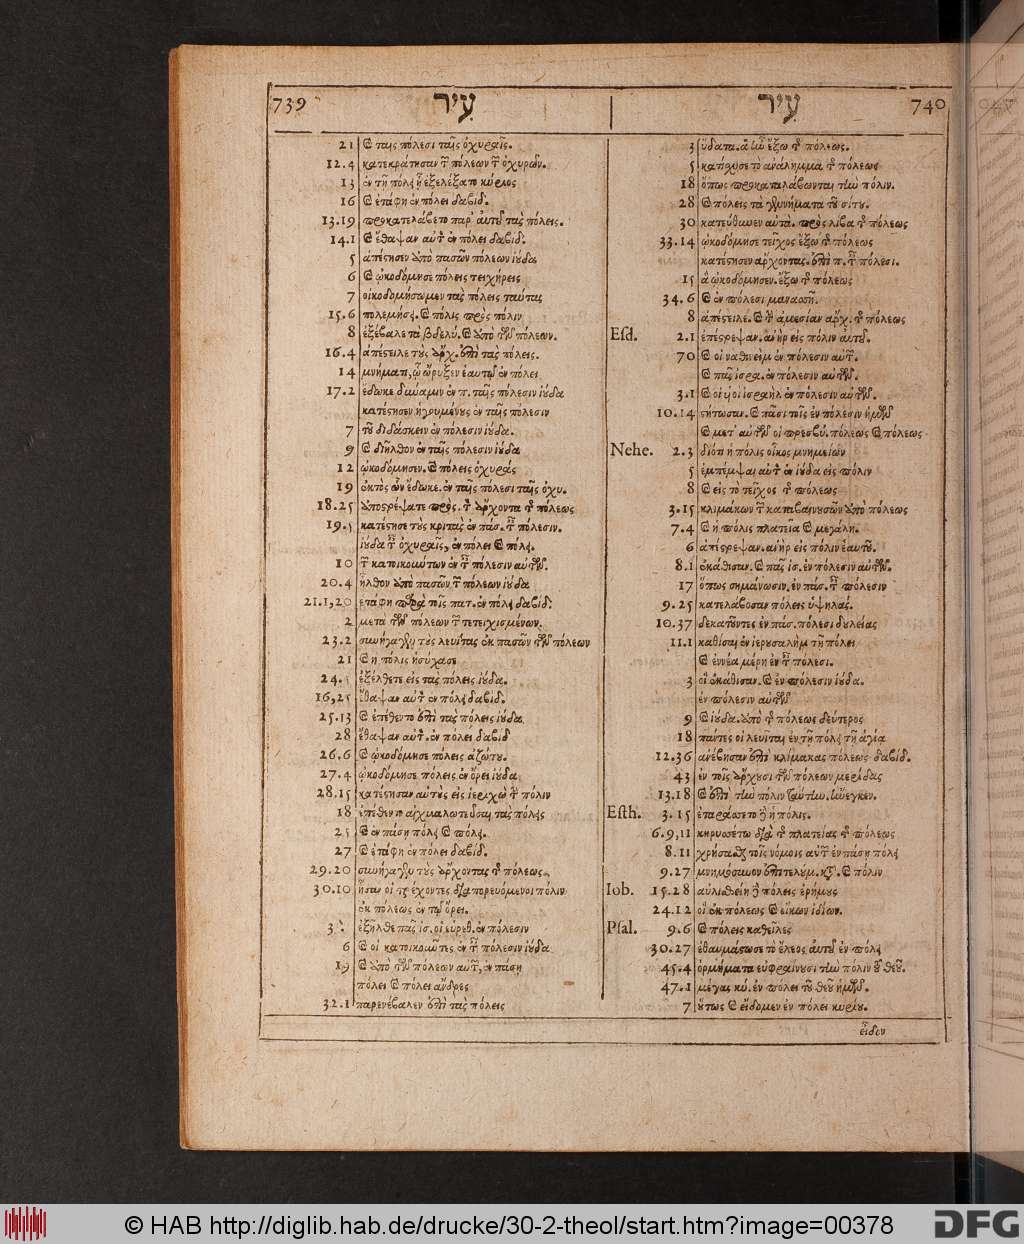 739 עִיר
21 καὶ ταῖς πόλεσι ταῖς ὀχυραῖς.
12.4 κατεκράτησαν τῶν πόλεων τῶν ὀχυρῶν.
13 ἐν τῇ πόλει ᾗ ἐξελέξατο κύριος
16 καὶ ἐτάφη ἐν πόλει δαβίδ.
13.19 προκατελάβετο παρ' αὐτοῦ τὰς πόλεις.
14.1 καὶ ἔθαψαν αὐτὸν ἐν πόλει δαβίδ.
5 ἀπέστησεν ἀπὸ πασῶν πόλεων ἰούδα
6 καὶ ᾠκοδόμησε πόλεις τειχήρεις
7 οἰκοδομήσωμεν τὰς πόλεις ταύτας
15.6 πολεμήσει. καὶ πόλις πρὸς πόλιν
8 ἐξέβαλε τὰ βδελύ. καὶ ἀπὸ τῶν πόλεων.
16.4 ἀπέστειλε τοὺς ἄρχ. ἐπὶ τὰς πόλεις.
14 μνήματι, ᾧ ὤρυξεν ἑαυτῷ ἐν πόλει
17.2 ἔδωκε δύναμιν ἐν π. ταῖς πόλεσιν ἰούδα
κατέστησεν ἡγουμένους ἐν ταῖς πόλεσιν
7 τοῦ διδάσκειν ἐν πόλεσιν ἰούδα.
9 καὶ διῆλθον ἐν ταῖς πόλεσιν ἰούδα
12 ᾠκοδόμησεν. καὶ πόλεις ὀχυράς
19 ἐκτὸς ὧν ἔδωκε. ἐν ταῖς πόλεσι ταῖς ὀχυ.
18.25 ἀποστρέψατε πρὸς. τὸν ἄρχοντα τῆς πόλεως
19.5 κατέστησε τοὺς κριτὰς ἐν πάσ. ταῖς πόλεσιν.
ἰούδα ταῖς ὀχυραῖς, ἐν πόλει καὶ πόλει.
10 τῶν κατοικούντων ἐν ταῖς πόλεσιν αὐτῶν.
20.4 ἦλθον ἀπὸ πασῶν τῶν πόλεων ἰούδα
21.1,20 ἐτάφη παρὰ τοῖς πατ. ἐν πόλει δαβίδ.
2 μετὰ τῶν πόλεων τῶν τετειχισμένων.
23.2 συνήγαγε τοὺς λευίτας ἐκ πασῶν τῶν πόλεων
21 καὶ ἡ πόλις ἡσύχασε
24.5 ἐξέλθετε εἰς τὰς πόλεις ἰούδα.
16,25 ἔθαψαν αὐτὸν ἐν πόλει δαβίδ.
25.13 καὶ ἐπέθεντο ἐπὶ τὰς πόλεις ἰούδα
28 ἔθαψαν αὐτὸν. ἐν πόλει δαβίδ
26.6 καὶ ᾠκοδόμησε πόλεις ἀζώτου.
27.4 ᾠκοδόμησε πόλεις ἐν ὄρει ἰούδα
28.15 κατέστησαν αὐτοὺς εἰς ἱεριχὼ τὴν πόλιν
18 ἐπέθεντο αἰχμαλωτεῦσαι τὰς πόλεις
25 καὶ ἐν πάσῃ πόλει καὶ πόλει.
27 καὶ ἐτάφη ἐν πόλει δαβίδ.
29.20 συνήγαγε τοὺς ἄρχοντας τῆς πόλεως.
30.10 ἦσαν οἱ τρέχοντες διαπορευόμενοι πόλιν
ἐκ πόλεως ἐν τῷ ὄρει.
ἐξῆλθε πᾶς ἰσ. οἱ εὑρεθ. ἐν πόλεσιν
6 καὶ οἱ κατοικοῦντες ἐν ταῖς πόλεσιν ἰούδα
19 καὶ ἀπὸ τῶν πόλεων αὐτῶν, ἐν πάσῃ
πόλει καὶ πόλει ἄνδρες
32.1 παρενέβαλεν ἐπὶ τὰς πόλεις
עִיר 740
3 ὕδατα. ἃ ἦν ἔξω τῆς πόλεως.
5 κατίσχυσε τὸ ἀνάλημμα τῆς πόλεως
18 ὅπως προκαταλάβωνται τὴν πόλιν.
28 καὶ πόλεις τὰ γεννήματα τοῦ σίτου.
30 κατεύθυνεν αὐτὰ. πρὸς λίβα τῆς πόλεως
33.14 ᾠκοδόμησε τεῖχος ἔξω τῆς πόλεως
κατέστησεν ἄρχοντας. ἐπὶ π. ταῖς πόλεσι.
15 ἃ ᾠκοδόμησεν. ἔξω τῆς πόλεως
34.6 καὶ ἐν πόλεσι μανασσῆ.
8 ἀπέστειλε. καὶ τὸν ἀμεσίαν ἄρχ. τῆς πόλεως
Esd. 2.1 ἐπέστρεψαν. ἀνὴρ εἰς πόλιν αὐτοῦ.
70 καὶ οἱ ναθινεὶμ ἐν πόλεσιν αὐτῶν.
καὶ πᾶς ἰσρα. ἐν πόλεσιν αὐτῶν.
3.1 καὶ οἱ υἱοὶ ἰσραὴλ ἐν πόλεσιν αὐτῶν.
10.14 στήτωσαν. καὶ πᾶσι τοῖς ἐν πόλεσιν ἡμῶν
καὶ μετ' αὐτῶν οἱ πρεσβύ. πόλεως καὶ πόλεως
Nehe. 2.3 διότι ἡ πόλις οἶκος μνημείων
5 ἐμπέμψαι αὐτὸν ἐν ἰούδα εἰς πόλιν
8 καὶ εἰς τὸ τεῖχος τῆς πόλεως
3.15 κλιμάκων τῶν καταβαινουσῶν ἀπὸ πόλεως
7.4 καὶ ἡ πόλις πλατεῖα καὶ μεγάλη.
6 ἀπέστρεψαν. ἀνὴρ εἰς πόλιν ἑαυτοῦ.
8.1 ἐκάθισαν. καὶ πᾶς ἰσ. ἐν πόλεσιν αὐτῶν.
17 ὅπως σημάνωσιν. ἐν πάσ. ταῖς πόλεσιν
9.25 κατελάβοσαν πόλεις ὑψηλάς.
10.37 δεκατοῦντες ἐν πάσ. πόλεσι δουλείας
11.1 καθίσαι ἐν ἱερουσαλὴμ τῇ πόλει
καὶ ἐννέα μέρη ἐν ταῖς πόλεσι.
3 οἳ ἐκάθισαν. καὶ ἐν πόλεσιν ἰούδα.
ἐν πόλεσιν αὐτῶν
9 καὶ ἰούδα. ἀπὸ τῆς πόλεως δεύτερος
18 πάντες οἱ λευῖται ἐν τῇ πόλει τῇ ἁγίᾳ
12.36 ἀνέβησαν ἐπὶ κλίμακας πόλεως δαβίδ.
43 ἐν τοῖς ἄρχουσι τῶν πόλεων μερίδας
13.18 καὶ ἐπὶ τὴν πόλιν ταύτην. ἤνεγκεν.
Esth. 3.15 ἐταράσσετο δὲ ἡ πόλις.
6.9,11 κηρυσσέτω διὰ τῆς πλατείας τῆς πόλεως
8.11 χρῆσθαι τοῖς νόμοις αὐτῶν ἐν πάσῃ πόλει
9.27 μνημόσυνον ἐπιτελούμ. κατὰ. καὶ πόλιν
Iob. 15.28 αὐλισθείη δὲ πόλεις ἐρήμους
24.12 οἳ ἐκ πόλεως καὶ οἴκων ἰδίων.
Psal. 9.6 καὶ πόλεις καθεῖλες
30.27 ἐθαυμάστωσε τὸ ἔλεος αὐτοῦ ἐν πόλει
45.4 ὁρμήματα εὐφραίνουσι τὴν πόλιν τοῦ θεοῦ.
47.1 μέγας κύ. ἐν πόλει τοῦ θεοῦ ἡμῶν.
7 οὕτως καὶ εἴδομεν ἐν πόλει κυρίου.
εἶδεν
© HAB http://diglib.hab.de/drucke/30-2-theol/start.htm?image=00378
DFG